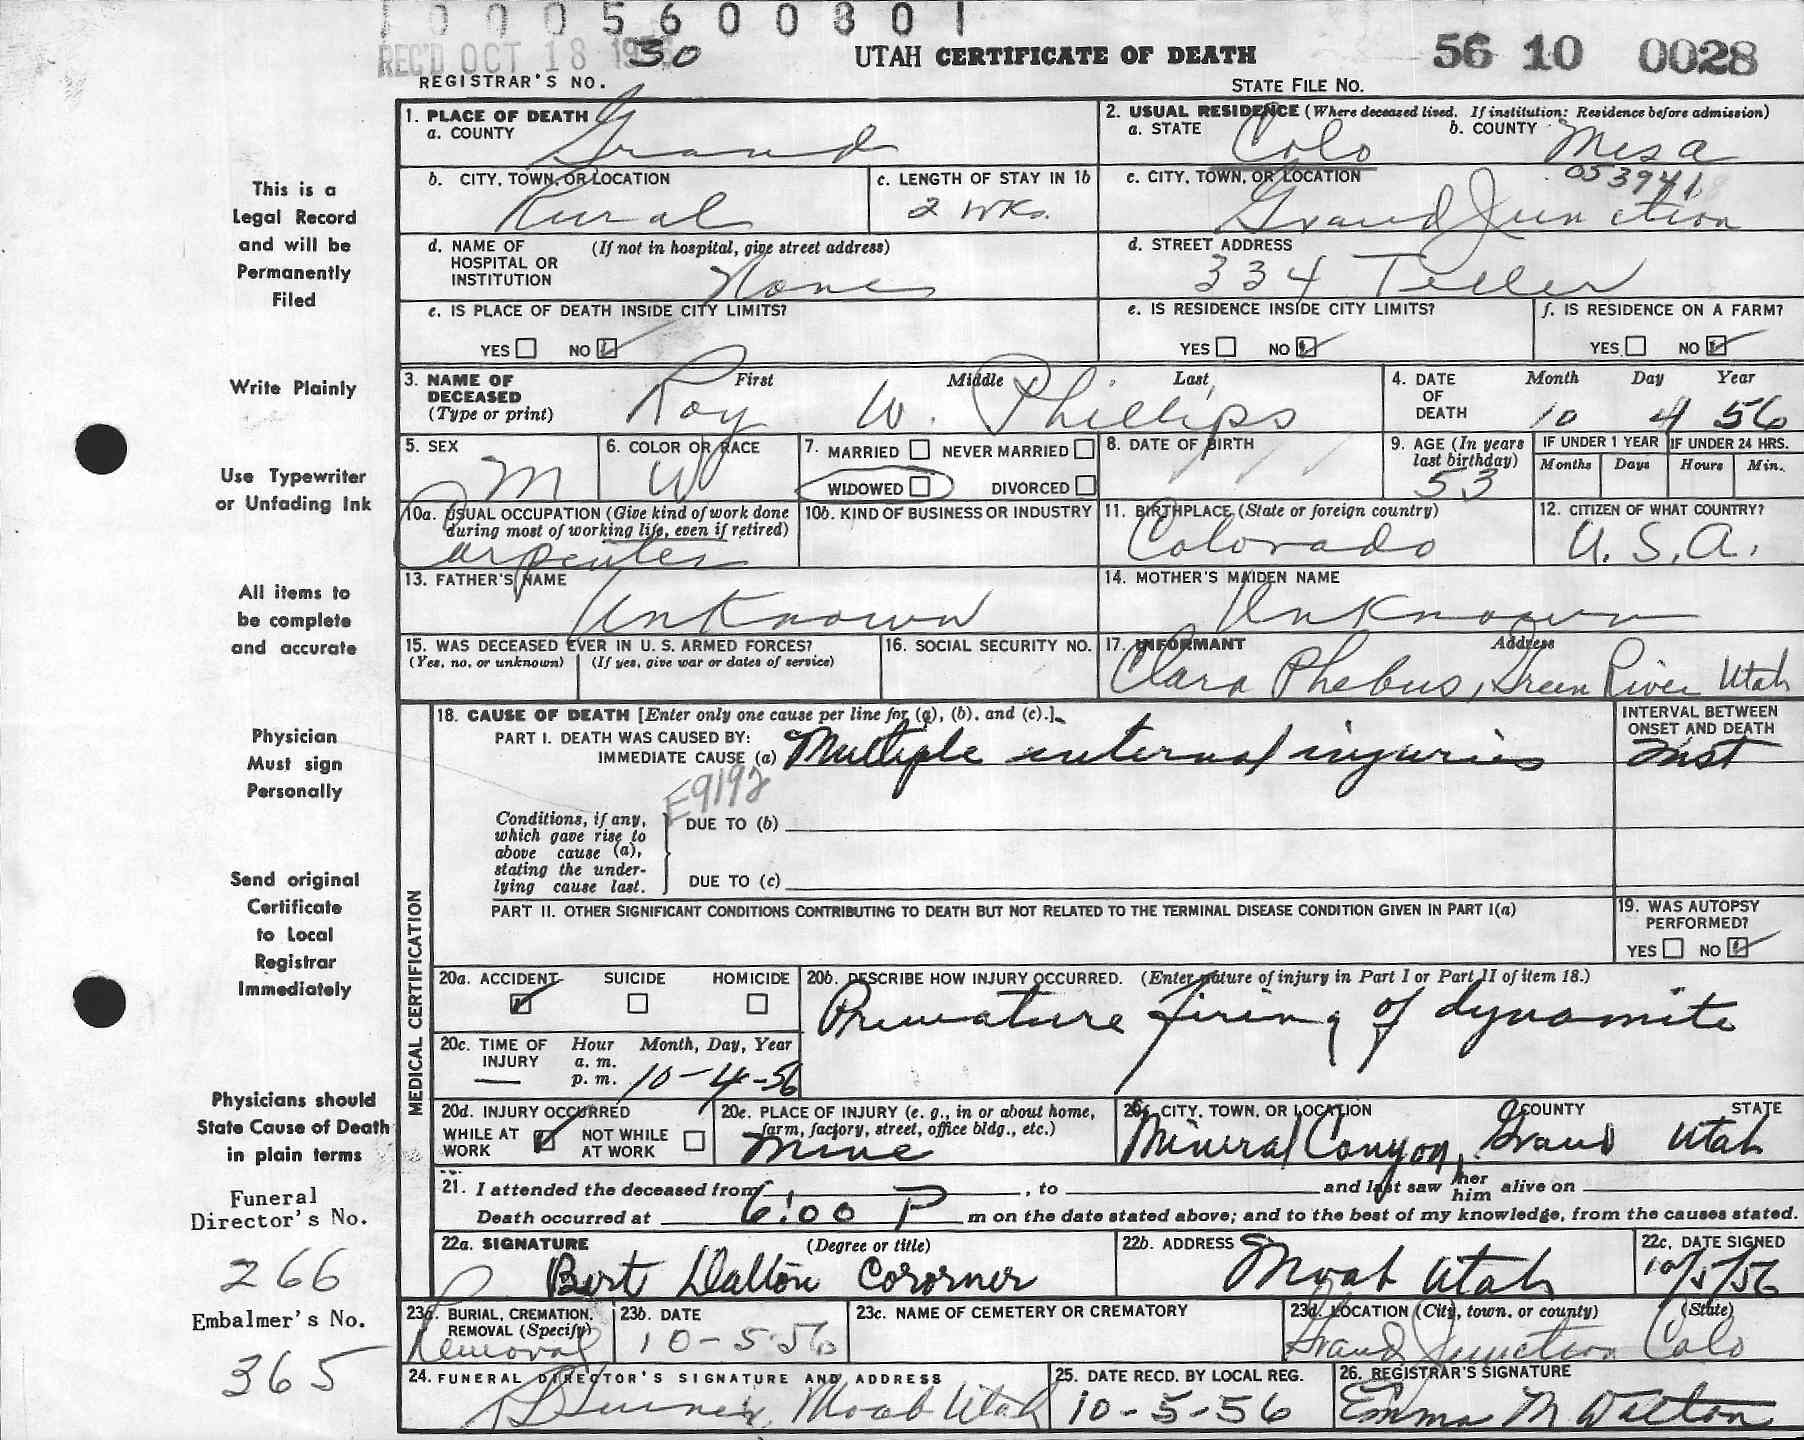 1 0 0 0 5 6 0 0 3 0 1
REC'D OCT 18 1956
30
UTAH CERTIFICATE OF DEATH
56 10 0028
REGISTRAR'S NO.
STATE FILE NO.
1. PLACE OF DEATH
a. COUNTY
Grand
2. USUAL RESIDENCE (Where deceased lived. If institution: Residence before admission)
a. STATE Colo b. COUNTY Mesa
b. CITY, TOWN, OR LOCATION
Rural
c. LENGTH OF STAY IN 1b
2 wks.
c. CITY, TOWN, OR LOCATION
Grand Junction
d. NAME OF HOSPITAL OR INSTITUTION (If not in hospital, give street address)
None
d. STREET ADDRESS
334 Teller
e. IS PLACE OF DEATH INSIDE CITY LIMITS?
YES NO
e. IS RESIDENCE INSIDE CITY LIMITS?
YES NO
f. IS RESIDENCE ON A FARM?
YES NO
3. NAME OF DECEASED (Type or print)
First Middle Last
Roy W. Phillips
4. DATE OF DEATH
Month Day Year
10 4 56
5. SEX
M
6. COLOR OR RACE
W
7. MARRIED NEVER MARRIED
WIDOWED DIVORCED
8. DATE OF BIRTH
9. AGE (In years last birthday)
53
IF UNDER 1 YEAR
Months Days
IF UNDER 24 HRS.
Hours Min.
10a. USUAL OCCUPATION (Give kind of work done during most of working life, even if retired)
Carpenter
10b. KIND OF BUSINESS OR INDUSTRY
11. BIRTHPLACE (State or foreign country)
Colorado
12. CITIZEN OF WHAT COUNTRY?
U.S.A.
13. FATHER'S NAME
Unknown
14. MOTHER'S MAIDEN NAME
Unknown
15. WAS DECEASED EVER IN U. S. ARMED FORCES?
(Yes, no, or unknown) (If yes, give war or dates of service)
16. SOCIAL SECURITY NO.
17. INFORMANT Address
Clara Phebus, Green River Utah
MEDICAL CERTIFICATION
18. CAUSE OF DEATH [Enter only one cause per line for (a), (b), and (c).]
PART I. DEATH WAS CAUSED BY:
IMMEDIATE CAUSE (a) Multiple internal injuries
INTERVAL BETWEEN ONSET AND DEATH
Inst
E9192
Conditions, if any, which gave rise to above cause (a), stating the underlying cause last.
DUE TO (b)
DUE TO (c)
PART II. OTHER SIGNIFICANT CONDITIONS CONTRIBUTING TO DEATH BUT NOT RELATED TO THE TERMINAL DISEASE CONDITION GIVEN IN PART I(a)
19. WAS AUTOPSY PERFORMED?
YES NO
20a. ACCIDENT SUICIDE HOMICIDE
20b. DESCRIBE HOW INJURY OCCURRED. (Enter nature of injury in Part I or Part II of item 18.)
Premature firing of dynamite
20c. TIME OF INJURY
Hour Month, Day, Year
a. m.
p. m. 10-4-56
20d. INJURY OCCURRED
WHILE AT WORK NOT WHILE AT WORK
20e. PLACE OF INJURY (e. g., in or about home, farm, factory, street, office bldg., etc.)
mine
20f. CITY, TOWN, OR LOCATION COUNTY STATE
Mineral Canyon, Grand Utah
21. I attended the deceased from , to and last saw her him alive on
Death occurred at 6:00 P m on the date stated above; and to the best of my knowledge, from the causes stated.
22a. SIGNATURE (Degree or title)
Bert Dalton Cororner
22b. ADDRESS
Moab Utah
22c. DATE SIGNED
10/5/56
23a. BURIAL, CREMATION, REMOVAL (Specify)
Removal
23b. DATE
10-5-56
23c. NAME OF CEMETERY OR CREMATORY
23d. LOCATION (City, town, or county) (State)
Grand Junction Colo
24. FUNERAL DIRECTOR'S SIGNATURE AND ADDRESS
Moab Utah
25. DATE RECD. BY LOCAL REG.
10-5-56
26. REGISTRAR'S SIGNATURE
Emma M Dalton
This is a
Legal Record
and will be
Permanently
Filed
Write Plainly
Use Typewriter
or Unfading Ink
All items to
be complete
and accurate
Physician
Must sign
Personally
Send original
Certificate
to Local
Registrar
Immediately
Physicians should
State Cause of Death
in plain terms
Funeral
Director's No.
266
Embalmer's No.
365